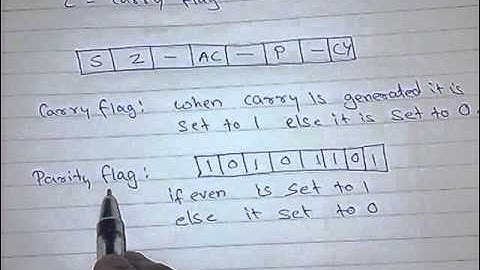 C - Carry flag
S Z - AC - P - CY
Carry flag: when carry is generated it is
set to 1 else it is set to 0.
Parity flag: 1 0 1 0 1 1 0 1
if even is set to 1
else it set to 0